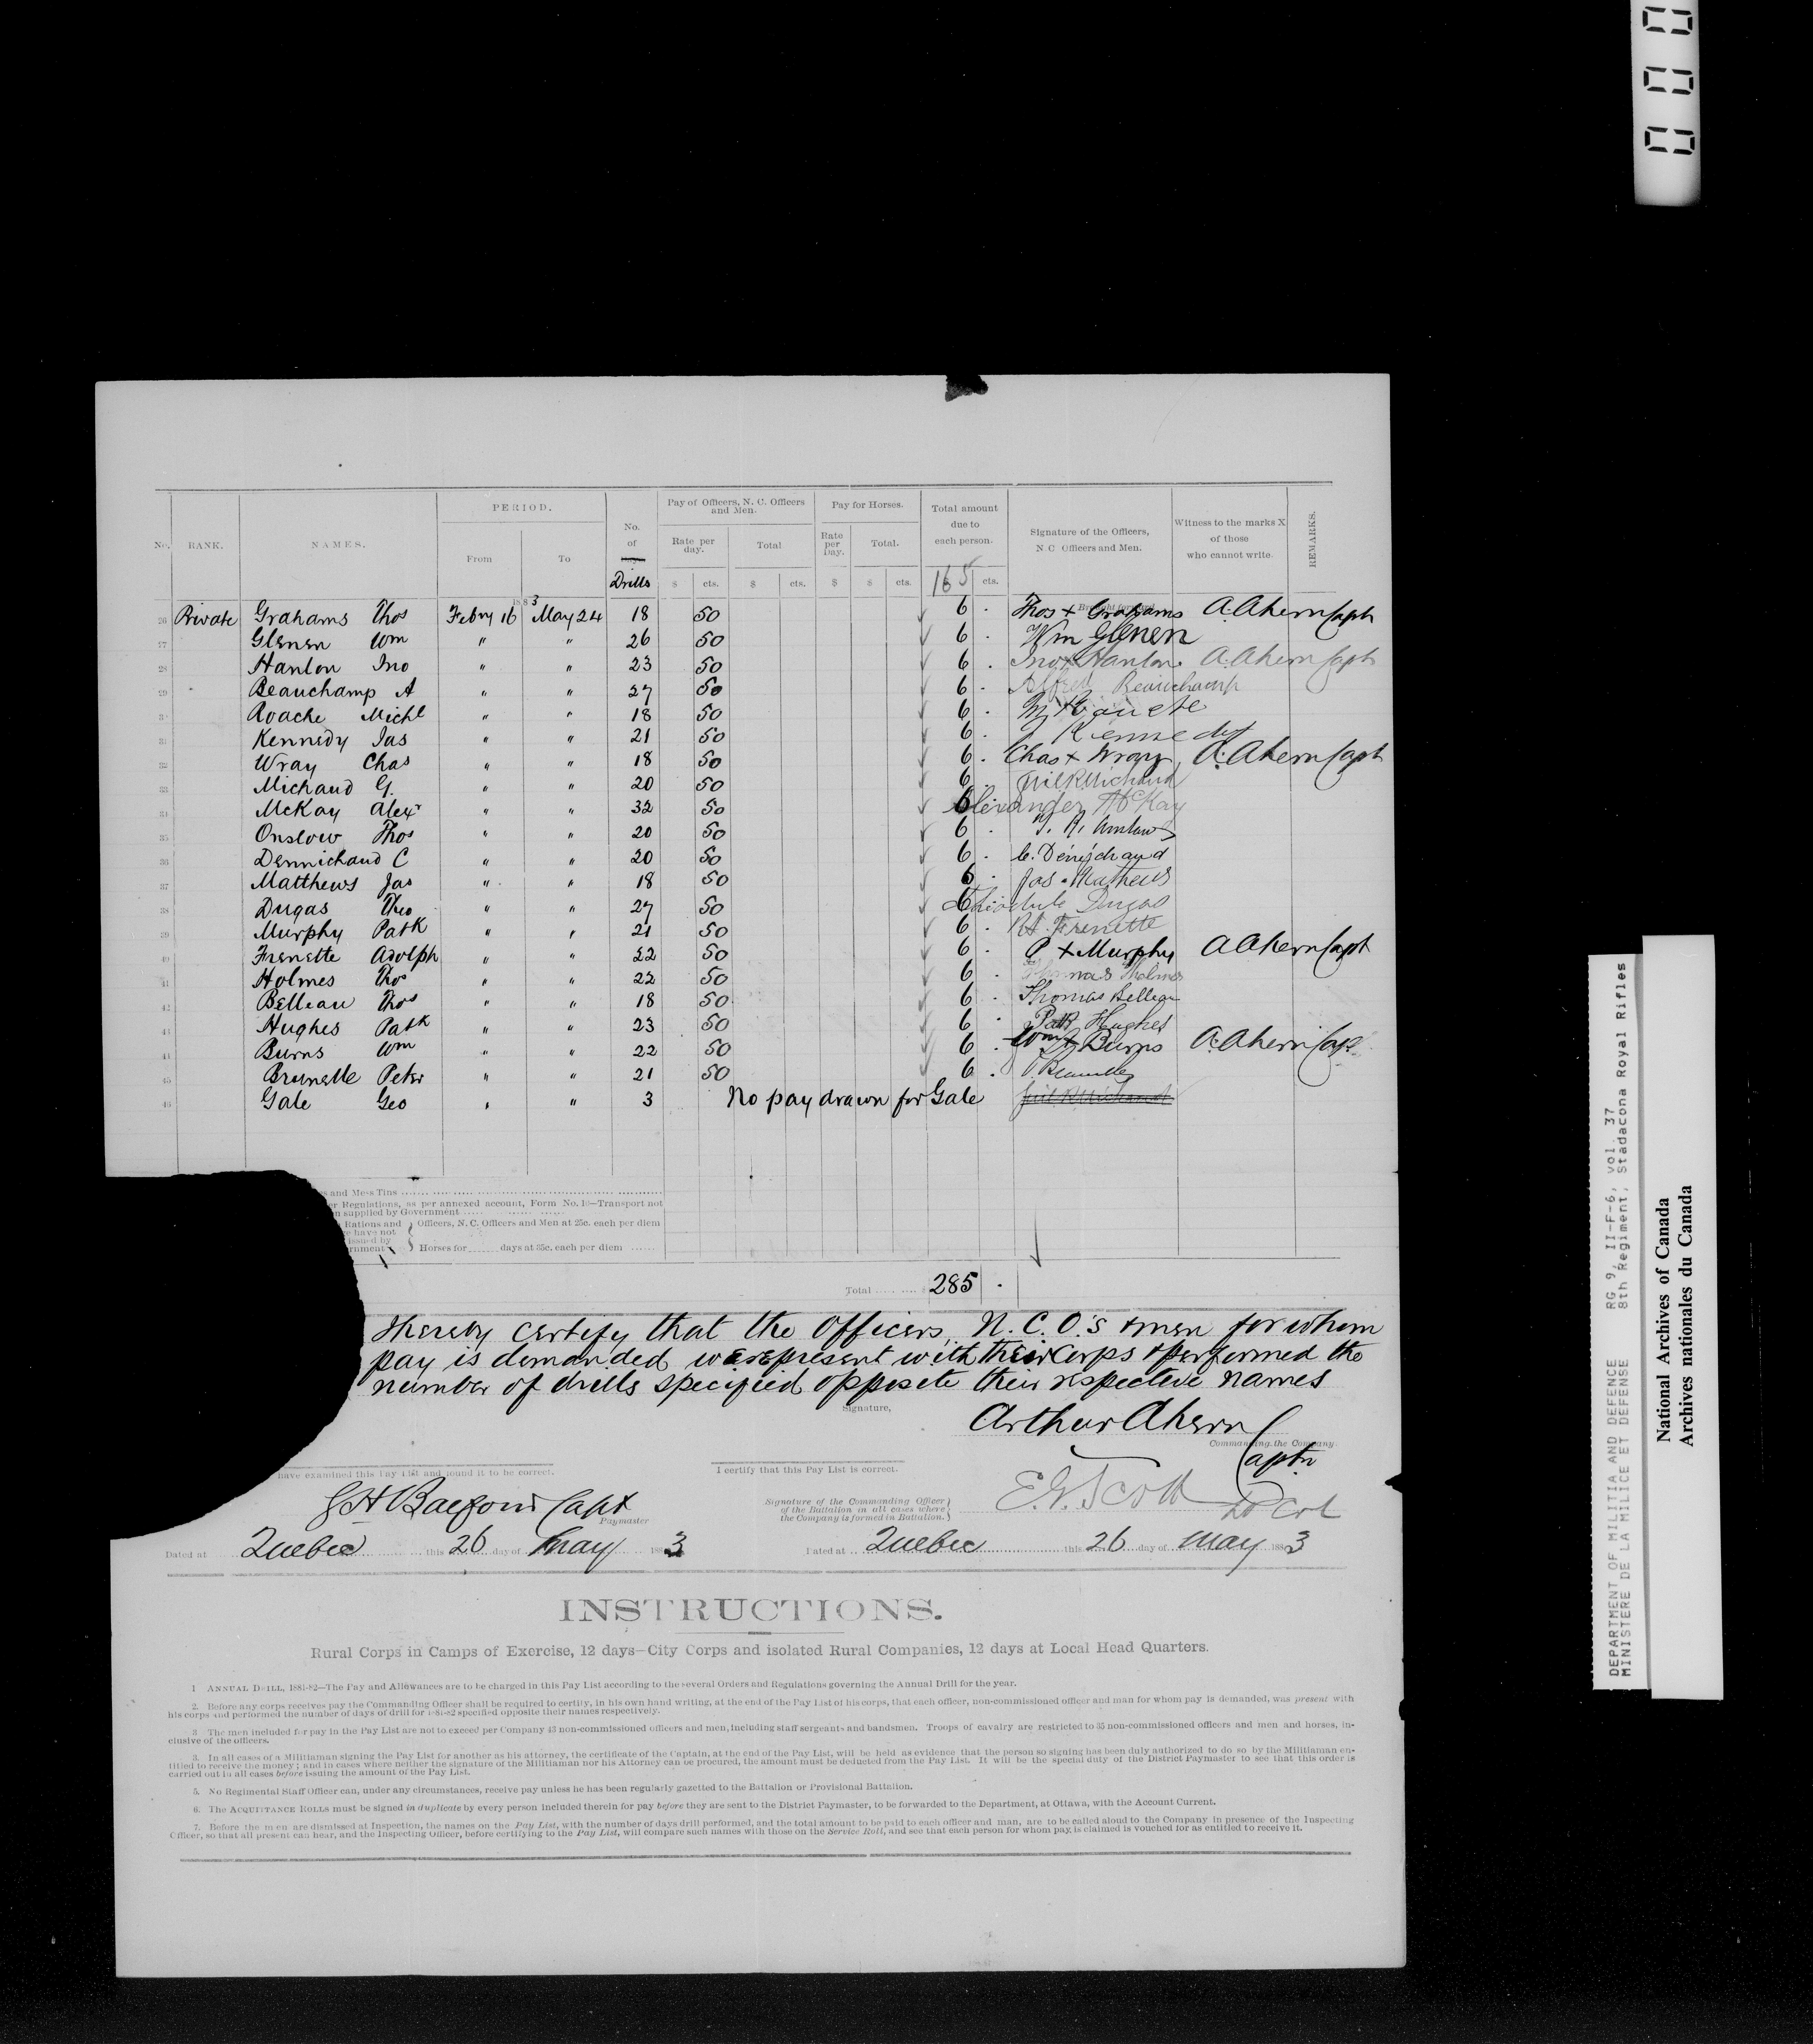 0 0 0
No. RANK. NAMES. PERIOD. From To No. of Drills Pay of Officers, N. C. Officers and Men. Rate per day. $ cts. Total $ cts. Pay for Horses. Rate per Day. $ Total. $ cts. Total amount due to each person. 165 cts. Signature of the Officers, N C Officers and Men. Witness to the marks X of those who cannot write. REMARKS.
1883 Brought forward
26 Private Grahams Thos Febry 16 May 24 18 50 6 . Thos + Grahams A. Ahern Capt
27 Glenen Wm " " 26 50 6 . Wm Glenen
28 Hanlon Jno " " 23 50 6 . Jno + Hanlon A. Ahern Capt
29 Beauchamp A " " 27 50 6 . Alfred Beauchamp
30 Roache Michl " " 18 50 6 .
31 Kennedy Jas " " 21 50 6 . J Kennedy
32 Wray Chas " " 18 50 6 . Chas + Wray A. Ahern Capt
33 Michaud G. " " 20 50 6 . Michaud
34 McKay Alexr " " 32 50 6 Alexander McKay
35 Onslow Thos " " 20 50 6 .
36 Dennichaud C " " 20 50 6 . C. Dénéchaud
37 Matthews Jas " " 18 50 6 . Jas. Mathews
38 Dugas Theo " " 27 50 6 Dugas
39 Murphy Patk " " 21 50 6 . Frenette
40 Frenette Adolph " " 22 50 6 . P + Murphy A Ahern Capt
41 Holmes Thos " " 22 50 6 . Thomas Holmes
42 Belleau Thos " " 18 50 6 . Thomas Belleau
43 Hughes Patk " " 23 50 6 . Patk Hughes
44 Burns Wm " " 22 50 6 . Wm + Burns A. Ahern Cap
45 Brunelle Peter " " 21 50 6 . P. Brunelle
46 Gale Geo " " 3 No pay drawn for Gale
s and Mess Tins
or Regulations, as per annexed account, Form No. 10—Transport not
n supplied by Government
Rations and
e have not
issued by
rnment
Officers, N. C. Officers and Men at 25c. each per diem
Horses for days at 35c. each per diem
Total 285 .
I hereby certify that the Officers, N. C. O.'s & men for whom
pay is demanded were present with their Corps & performed the
number of drills specified opposite their respective names
Signature,
Arthur Ahern Captn
Commanding the Company.
have examined this Pay List and found it to be correct.
I certify that this Pay List is correct.
Balfour Capt
Paymaster
Signature of the Commanding Officer of the Battalion in all cases where the Company is formed in Battalion.
E. G. Scott Lt Col
Dated at Quebec this 26 day of May 1883
Dated at Quebec this 26 day of May 1883
INSTRUCTIONS.
Rural Corps in Camps of Exercise, 12 days—City Corps and isolated Rural Companies, 12 days at Local Head Quarters.
1 ANNUAL DRILL, 1881-82—The Pay and Allowances are to be charged in this Pay List according to the several Orders and Regulations governing the Annual Drill for the year.
2. Before any corps receives pay the Commanding Officer shall be required to certify, in his own hand writing, at the end of the Pay List of his corps, that each officer, non-commissioned officer and man for whom pay is demanded, was present with
his corps and performed the number of days of drill for 1881-82 specified opposite their names respectively.
3 The men included for pay in the Pay List are not to exceed per Company 43 non-commissioned officers and men, including staff sergeants and bandsmen. Troops of cavalry are restricted to 35 non-commissioned officers and men and horses, in-
clusive of the officers.
3. In all cases of a Militiaman signing the Pay List for another as his attorney, the certificate of the Captain, at the end of the Pay List, will be held as evidence that the person so signing has been duly authorized to do so by the Militiaman en-
titled to receive the money; and in cases where neither the signature of the Militiaman nor his Attorney can be procured, the amount must be deducted from the Pay List. It will be the special duty of the District Paymaster to see that this order is
carried out in all cases before issuing the amount of the Pay List.
5. No Regimental Staff Officer can, under any circumstances, receive pay unless he has been regularly gazetted to the Battalion or Provisional Battalion.
6. The ACQUITTANCE ROLLS must be signed in duplicate by every person included therein for pay before they are sent to the District Paymaster, to be forwarded to the Department, at Ottawa, with the Account Current.
7. Before the men are dismissed at Inspection, the names on the Pay List, with the number of days drill performed, and the total amount to be paid to each officer and man, are to be called aloud to the Company in presence of the Inspecting
Officer, so that all present can hear, and the Inspecting Officer, before certifying to the Pay List, will compare such names with those on the Service Roll, and see that each person for whom pay is claimed is vouched for as entitled to receive it.
DEPARTMENT OF MILITIA AND DEFENCE RG 9, II-F-6, vol. 37
MINISTERE DE LA MILICE ET DEFENSE 8th Regiment, Stadacona Royal Rifles
National Archives of Canada
Archives nationales du Canada